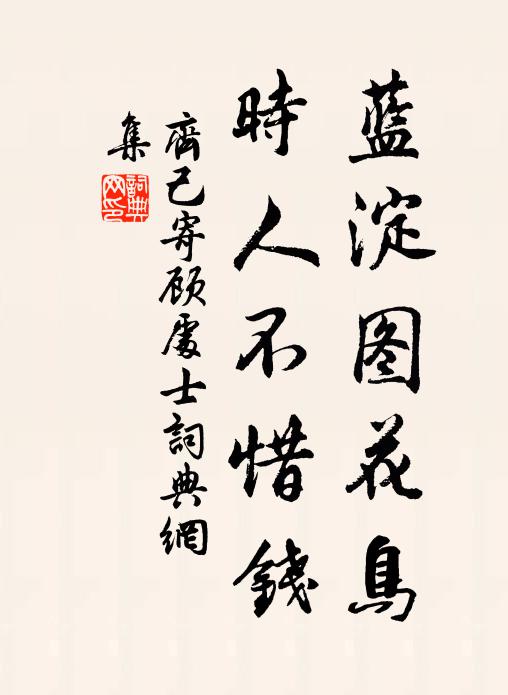 藍淀图花鳥
時人不惜錢
齊己寄顾處士詞典網
集
詞典网印